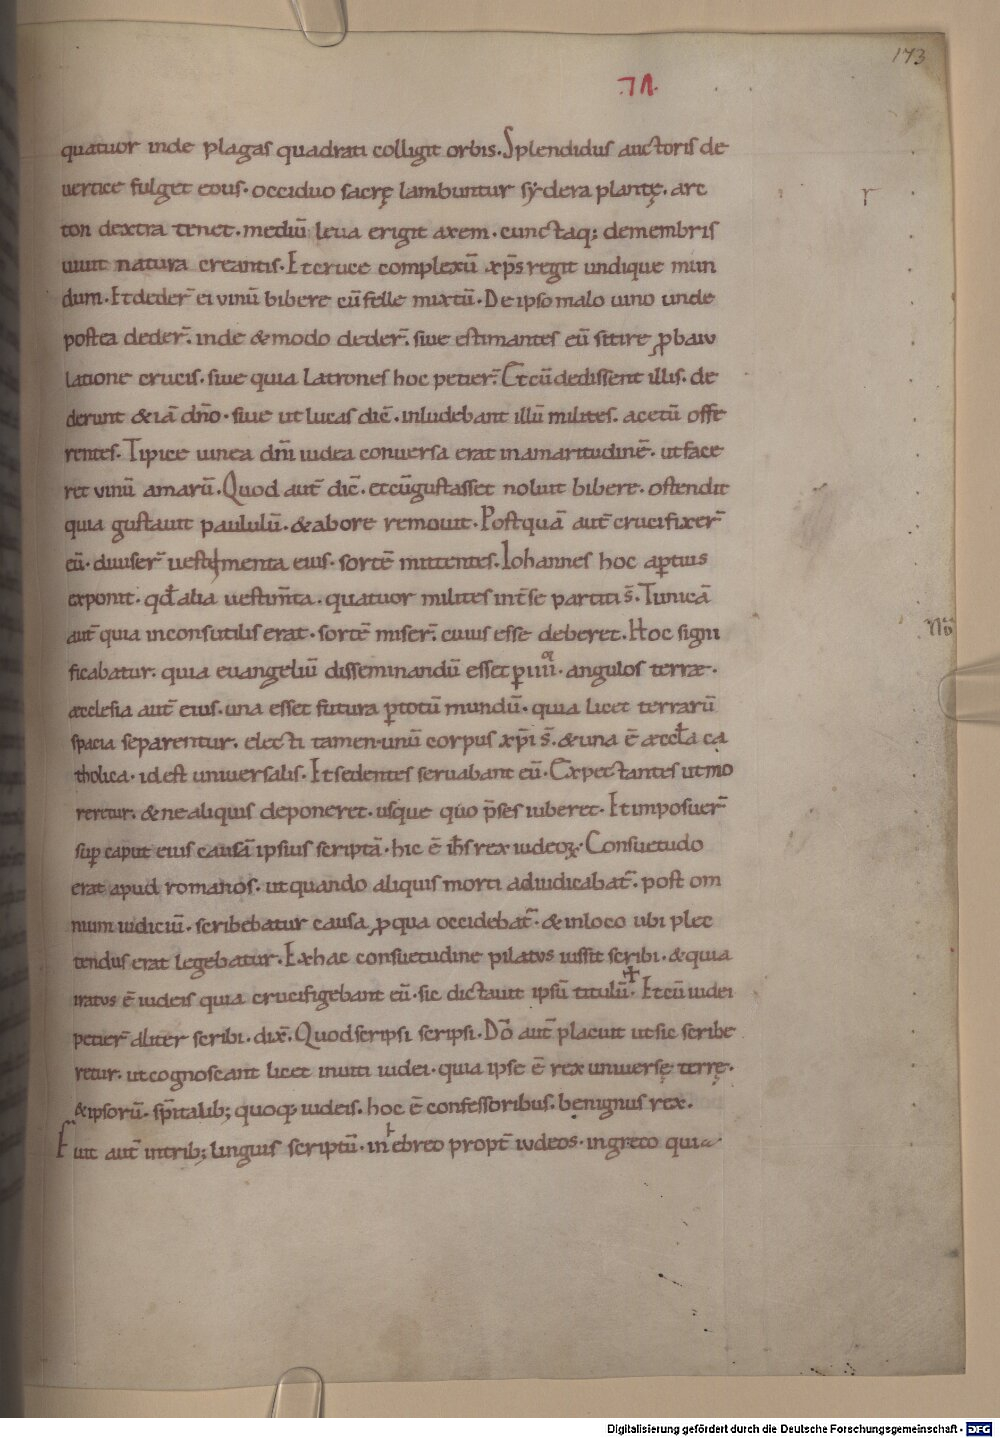 173
quatuor inde plagas quadrati colligit orbis. Splendidus auctoris de
uertice fulget eous. occiduo sacrę lambuntur sydera plantę. arc
ton dextra tenet. mediū leua erigit axem. cunctaq; demembris
uiuit natura creantis. Et cruce complexū xp̄s regit undique mun
dum. Et dedeṝ ei vinū bibere cū felle mixtū. De ipso malo uino unde
postea dedeṝ. inde & modo dedeṝ. siue estimantes eū sitire ꝓ baiu
latione crucis. siue quia latrones hoc petieṝ. Et cū dedissent illis. de
derunt & iā dn̄o. siue ut lucas dic̄. inludebant illū milites. acetū offe
rentes. Tipice uinea dn̄i iudea conuersa erat in amaritudinē. ut face
ret vinū amarū. Quod aut̄ dic̄. et cū gustasset noluit bibere. ostendit
quia gustauit paululū. & abore remouit. Postquā aut̄ crucifixeṝ
eū. diuiseṝ uestimenta eius. sortē mittentes. Iohannes hoc aꝑtius
exponit. qđ alia uestim̄ta. quatuor milites int̄ se partiti s̄. Tunicā
aut̄ quia inconsutilis erat. sortē miseṝ. cuius esse deberet. Hoc signi
ficabatur. quia euangeliū disseminandū esset ꝑ iiii. angulos terræ.
æcclesia aut̄ eius. una esset futura ꝑ totū mundū. quia licet terrarū
spacia separentur. electi tamen unū corpus xp̄i s̄. & una ē æccła ca
tholica. id est uniuersalis. Et sedentes seruabant eū. Expectantes ut mo
reretur. & ne aliquis deponeret. usque quo p̄ses iuberet. Et imposueṝ
suꝑ caput eius causā ipsius scriptā. hic ē ih̄s rex iudeoꝝ. Consuetudo
erat apud romanos. ut quando aliquis morti adiudicabat̄. post om
nium iudiciū. scribebatur causa ꝓ qua occidebat̄. & in loco ubi plec
tendus erat legebatur. Ex hac consuetudine pilatus iussit scribi. & quia
iratus ē iudeis quia crucifigebant eū. sic dictauit ipsū titulū. Et cū iudei
petieṝ aliter scribi. dix̄. Quod scripsi scripsi. Dō aut̄ placuit ut sic scribe
retur. ut cognoscant licet inuiti iudei. quia ipse ē rex uniuersę terrę.
& ipsorū. sp̄italib; quoq; iudeis. hoc ē confessoribus. benignus rex.
Fuit aut̄ in trib; linguis scriptū. in ebreo propt̄ iudeos. in greco qui
Digitalisierung gefördert durch die Deutsche Forschungsgemeinschaft - DFG